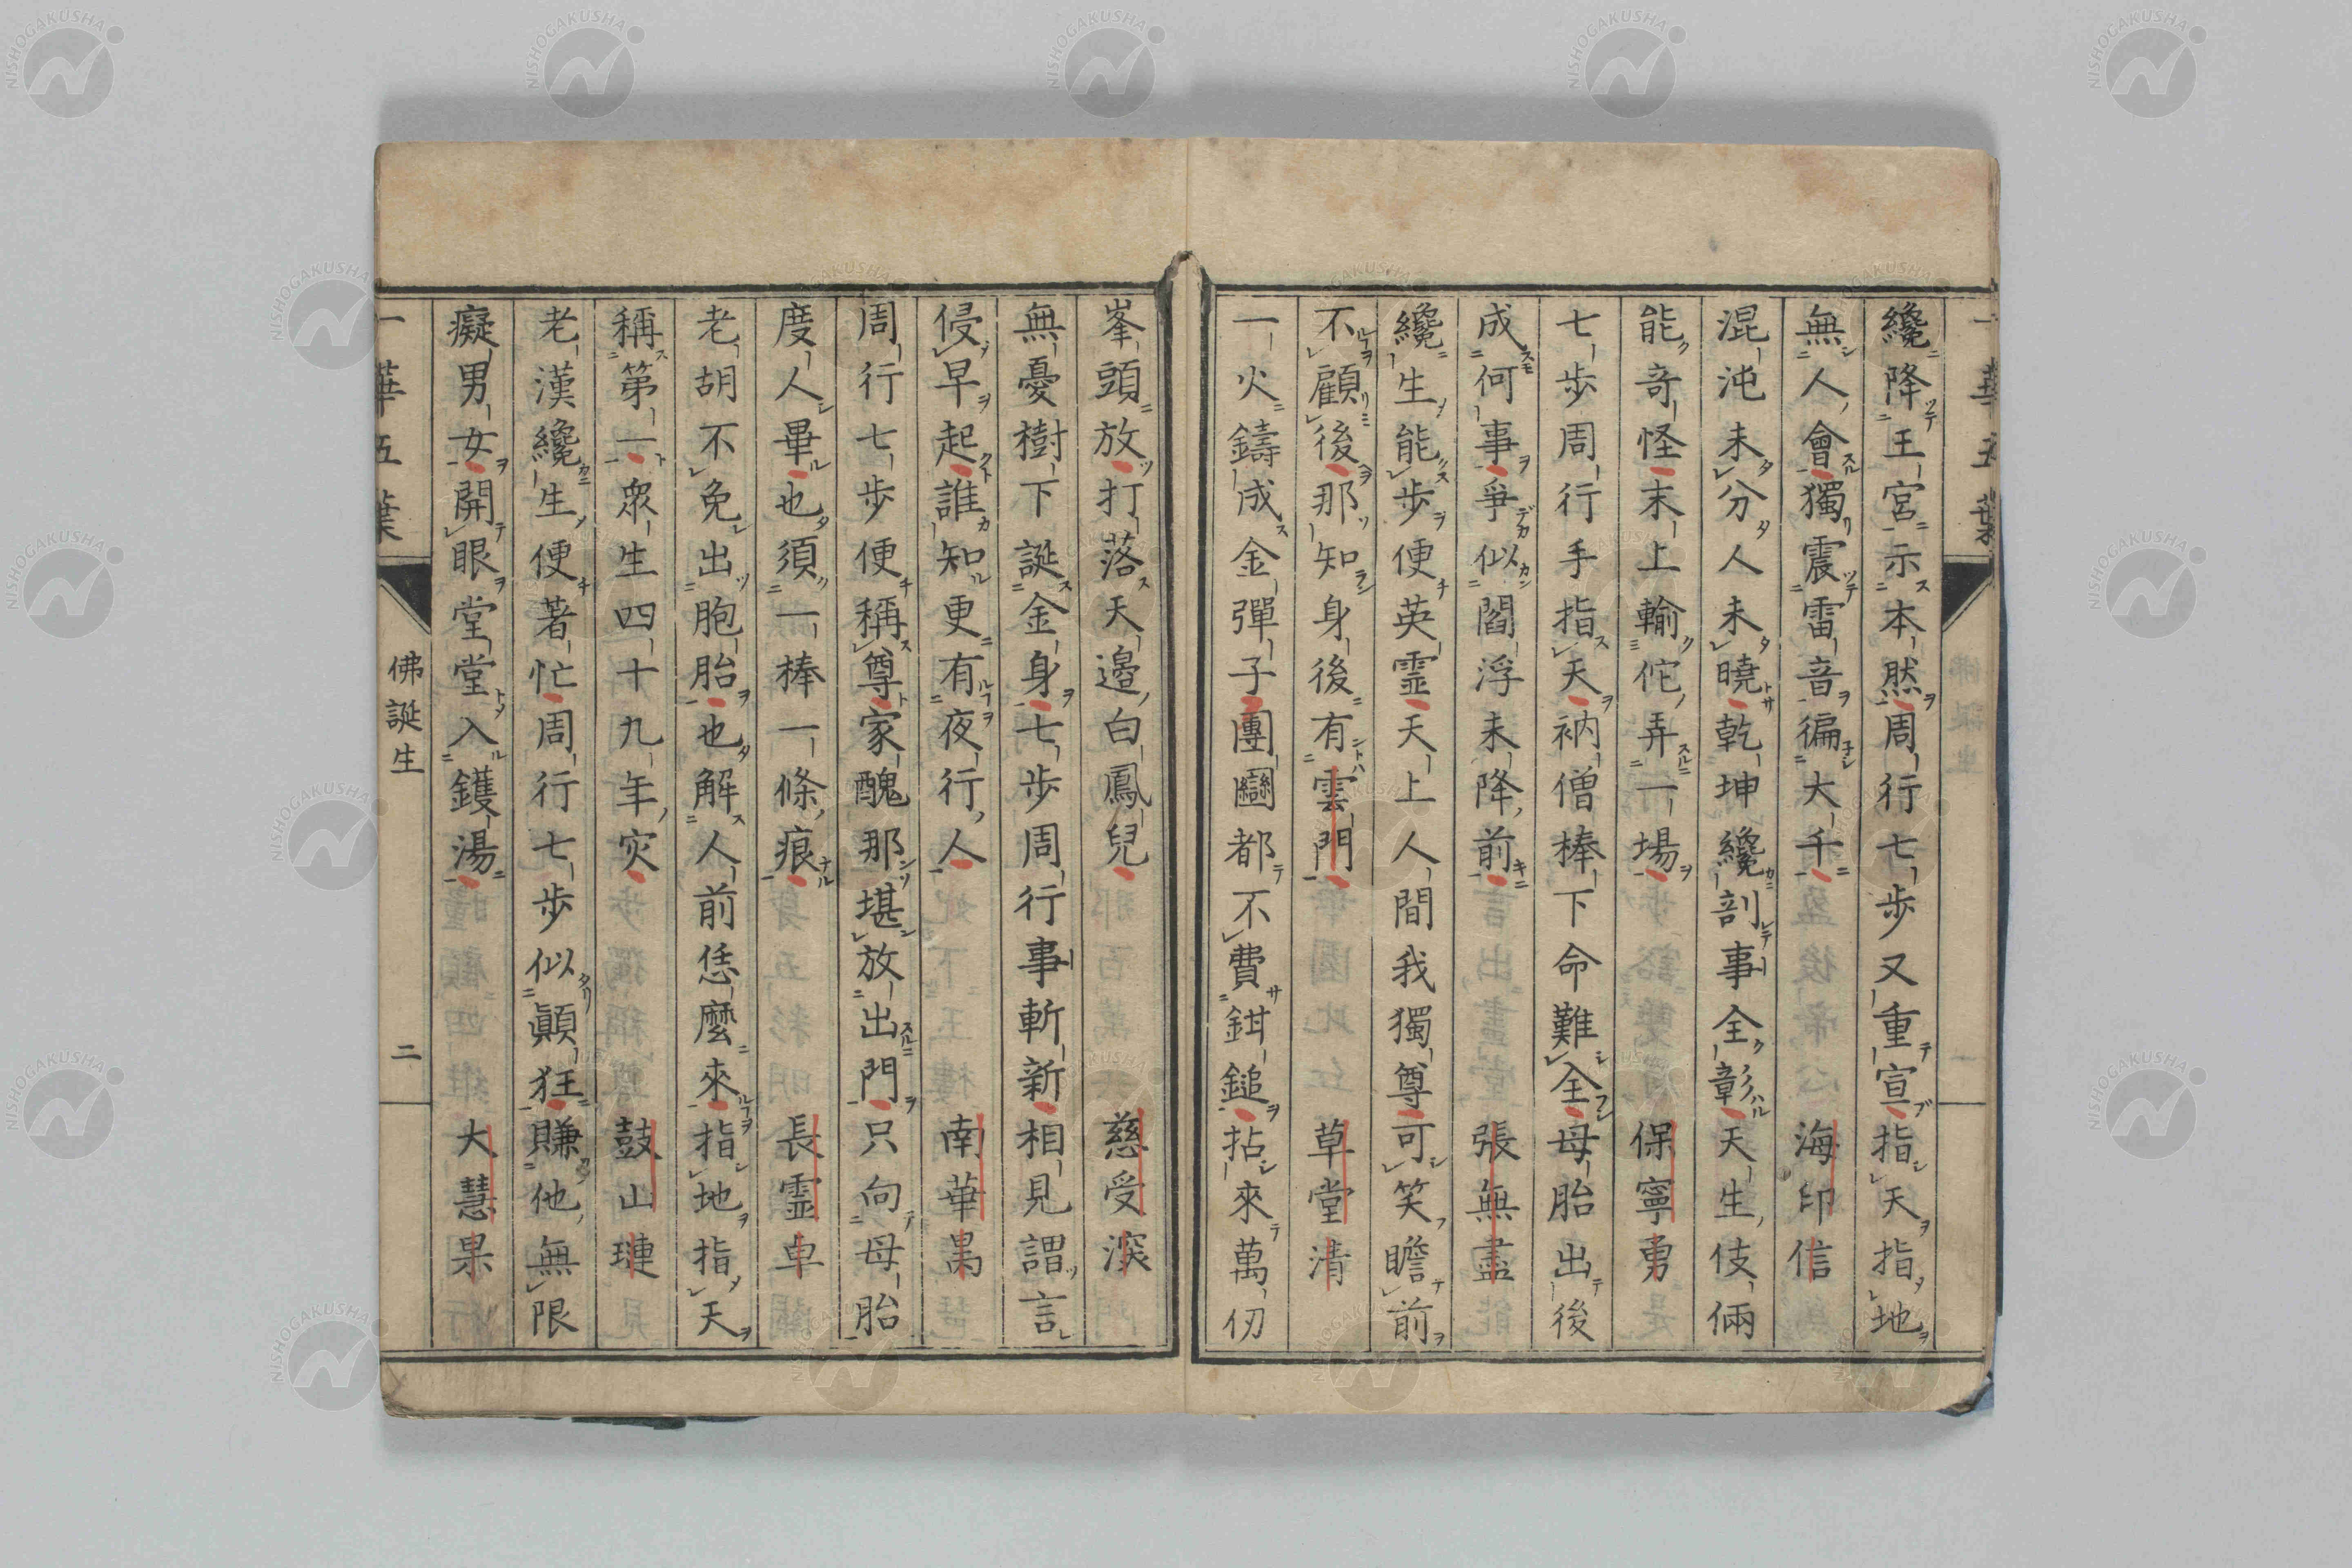 纔降王宮示本然周行七步又重宣指天指地
無人會獨震雷音徧大千　海印信
混沌未分人未曉乾坤纔剖事全彰天生伎倆
能竒怪末上輸佗弄一場　保寧勇
七步周行手指天衲僧棒下命難全母胎出後
成何事爭似閻浮未降前　張無盡
纔生能步便英靈天上人間我獨尊可笑瞻前
不顧後那知身後有雲門　草堂清
一火鑄成金彈子團圞都不費鉗鎚拈來萬仞
峯頭放打落天邊白鳳兒　慈受深
無憂樹下誕金身七步周行事斬新相見謂言
侵早起誰知更有夜行人　南華昺
周行七步便稱尊家醜那堪放出門只向母胎
度人畢也須一棒一條痕　長靈卓
老胡不免出胞胎也解人前恁麼來指地指天
稱第一衆生四十九年灾　鼓山璉
老漢纔生便著忙周行七步似顛狂賺他無限
癡男女開眼堂堂入鑊湯　大慧杲
一華五葉　佛誕生　二
NISHOGAKUSHA